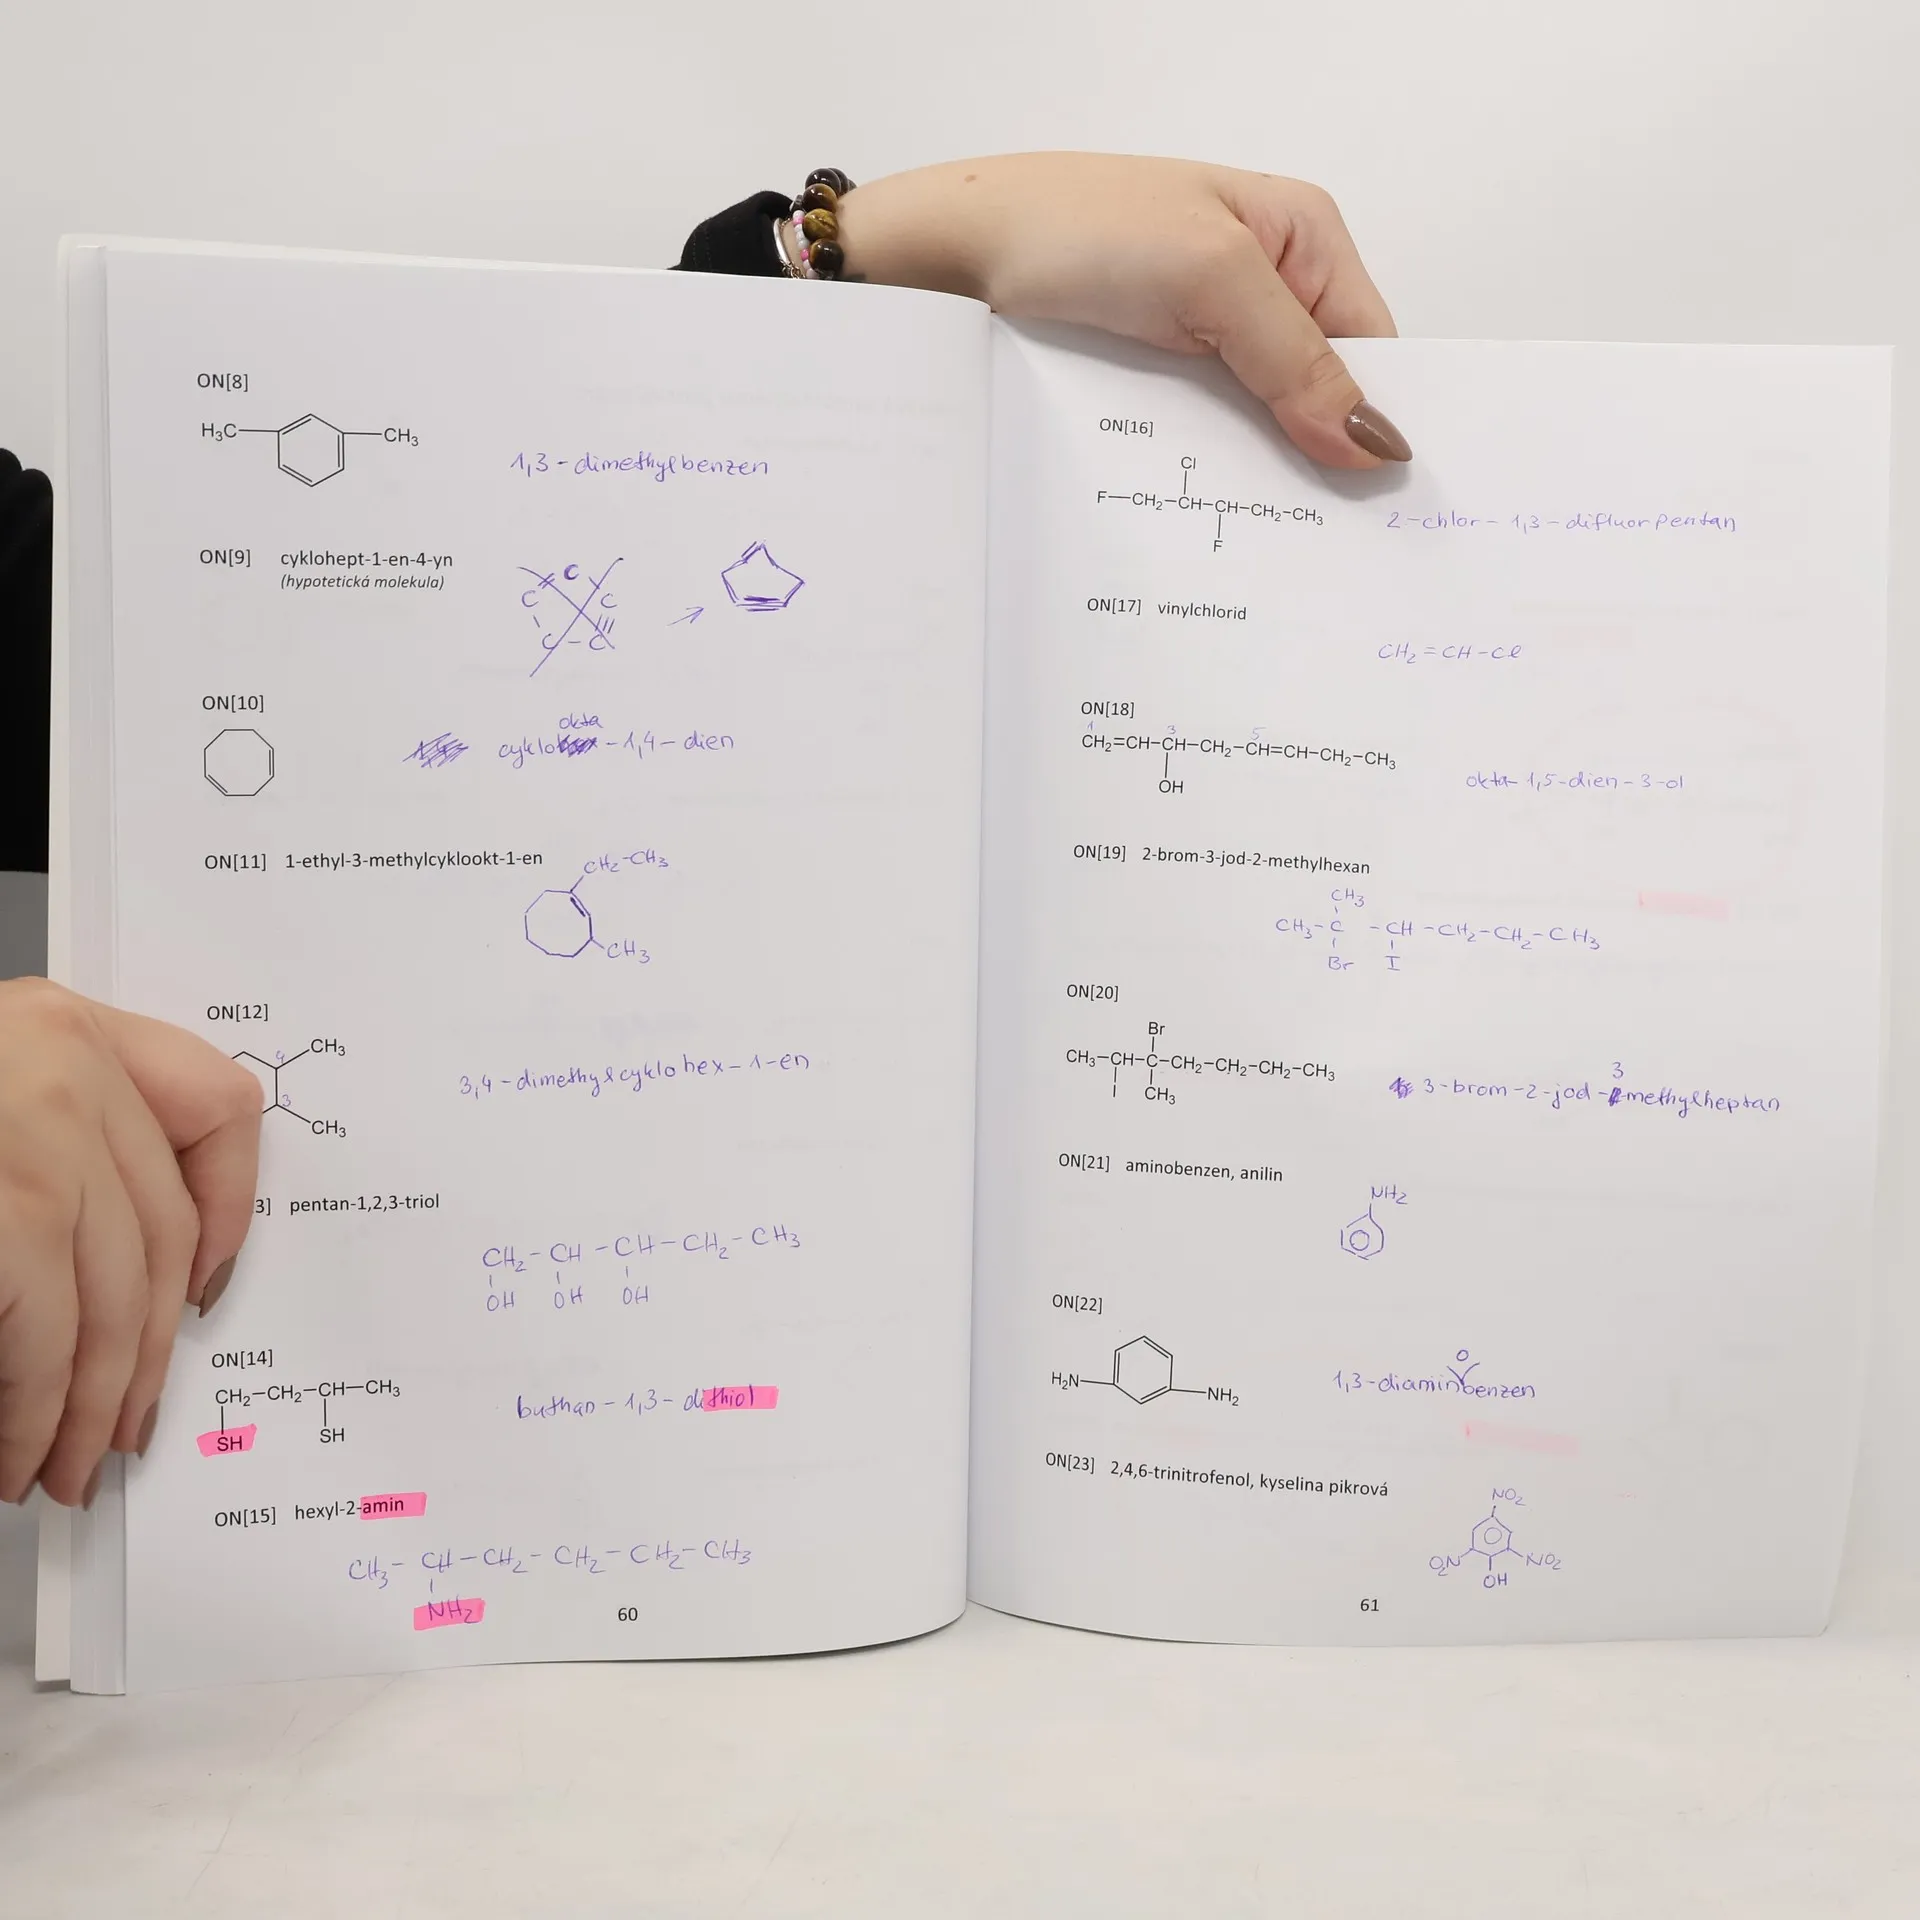 ON[8]
H₃C CH₃
1,3-dimethylbenzen
ON[9] cyklohept-1-en-4-yn
(hypotetická molekula)
C
C C
C - C
ON[10]
okta
cyklo -1,4-dien
ON[11] 1-ethyl-3-methylcyklookt-1-en
CH₂-CH₃
CH₃
ON[12]
4 CH₃
3,4-dimethylcyklohex-1-en
3
CH₃
3] pentan-1,2,3-triol
CH₂-CH-CH-CH₂-CH₃
OH OH OH
ON[14]
CH₂-CH₂-CH-CH₃
buthan-1,3-dithiol
SH SH
ON[15] hexyl-2-amin
CH₃-CH-CH₂-CH₂-CH₂-CH₃
NH₂
60
ON[16]
Cl
F-CH₂-CH-CH-CH₂-CH₃
2-chlor-1,3-difluorpentan
F
ON[17] vinylchlorid
CH₂=CH-Cl
ON[18]
1 3 5
CH₂=CH-CH-CH₂-CH=CH-CH₂-CH₃
OH
okta-1,5-dien-3-ol
ON[19] 2-brom-3-jod-2-methylhexan
CH₃
CH₃-C-CH-CH₂-CH₂-CH₃
Br I
ON[20]
Br
CH₃-CH-C-CH₂-CH₂-CH₂-CH₃
3
3-brom-2-jod-methylheptan
I CH₃
ON[21] aminobenzen, anilin
NH₂
ON[22]
H₂N NH₂
o
1,3-diaminbenzen
ON[23] 2,4,6-trinitrofenol, kyselina pikrová
NO₂
O₂N NO₂
OH
61